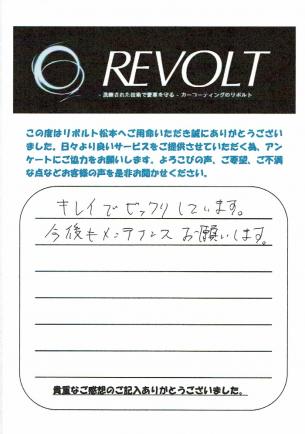 REVOLT
- 洗練された技術で愛車を守る - カーコーティングのリボルト
この度はリボルト松本へご用命いただき誠にありがとうござい
ました。日々より良いサービスをご提供させていただく為、アン
ケートにご協力をお願いします。よろこびの声、ご要望、ご不満
な点などお客様の声を是非お聞かせください。
キレイでビックリしています。
今後もメンテナンスお願いします。
貴重なご感想のご記入ありがとうございました。